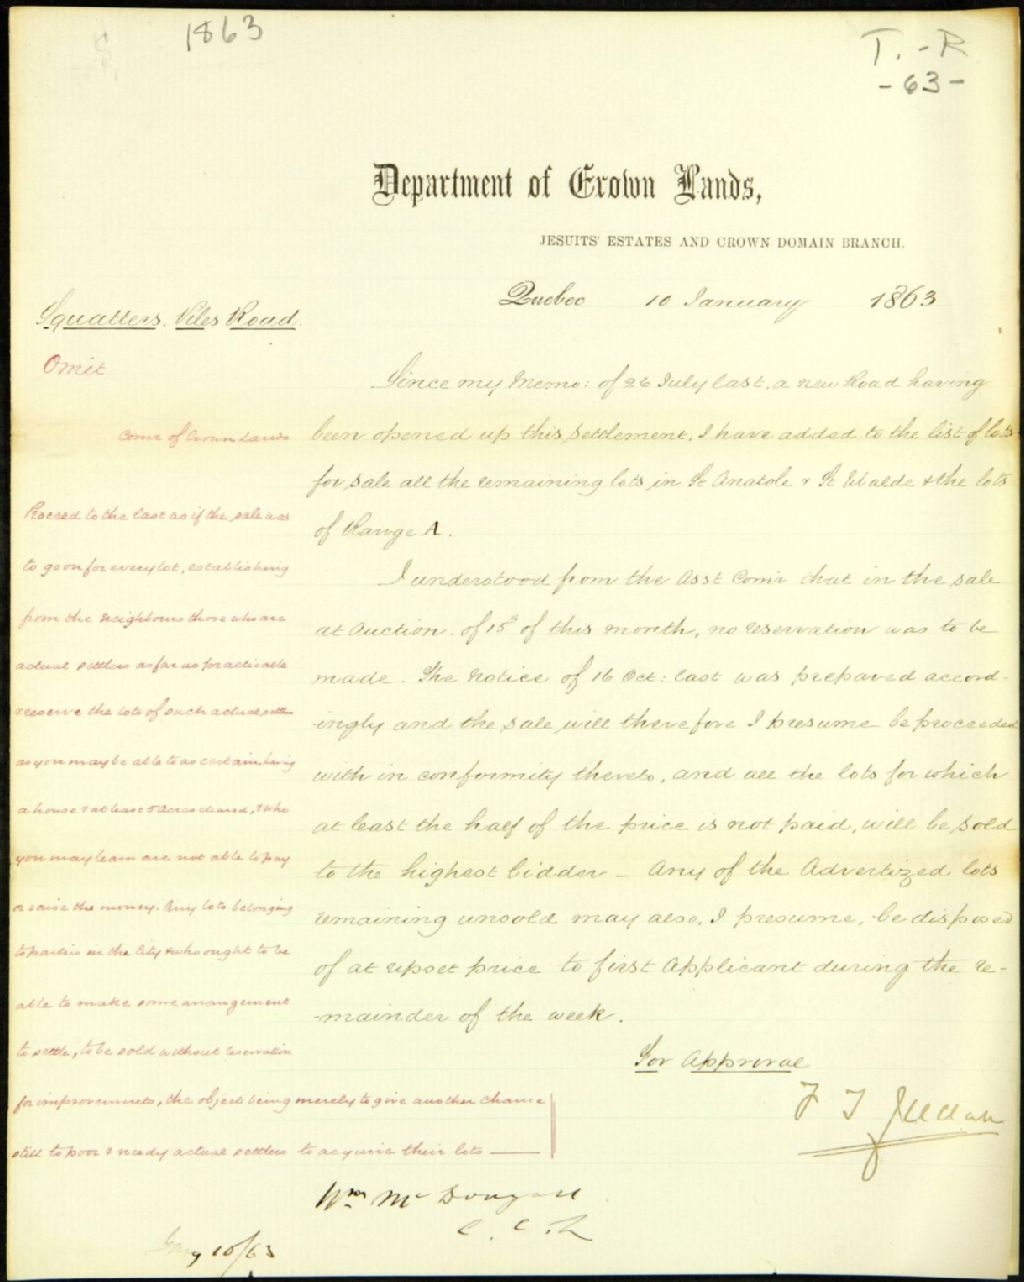 1863
T. - R
- 63 -
Department of Crown Lands,
JESUITS' ESTATES AND CROWN DOMAIN BRANCH.
Quebec 10 January 1863
Squatters. Piles Road.
Omit
Since my Memo: of 26 July last, a new Road having
been opened up this settlement, I have added to the list of lots
for sale all the remaining lots in St Anatole & St Ubalde & the lots
of Range A.
I understood from the Asst Comr that in the sale
at Auction of 15th of this month, no reservation was to be
made. The Notice of 16 Oct: last was prepared accord-
-ingly and the sale will therefore I presume be proceeded
with in conformity thereto, and all the lots for which
at least the half of the price is not paid, will be sold
to the highest bidder – Any of the Advertized lots
remaining unsold may also, I presume, be disposed
of at upset price to first Applicant during the re-
-mainder of the week.
For Approval
F T Judah
Comr of Crown Lands
Proceed to the last as if the sale was
to go on for every lot, establishing
from the neighbours those who are
actual settlers as far as practicable
reserve the lots of such actual settlers
as you may be able to ascertain, having
a house & at least 5 Acres cleared, & who
you may learn are not able to pay
or raise the money. Any lots belonging
to parties in the City & who ought to be
able to make some arrangement
to settle, to be sold without reservation
for improvements, the object being merely to give another chance
still to poor & needy actual settlers to acquire their lots —
Wm McDougall
C. C. L
Jany 10/63